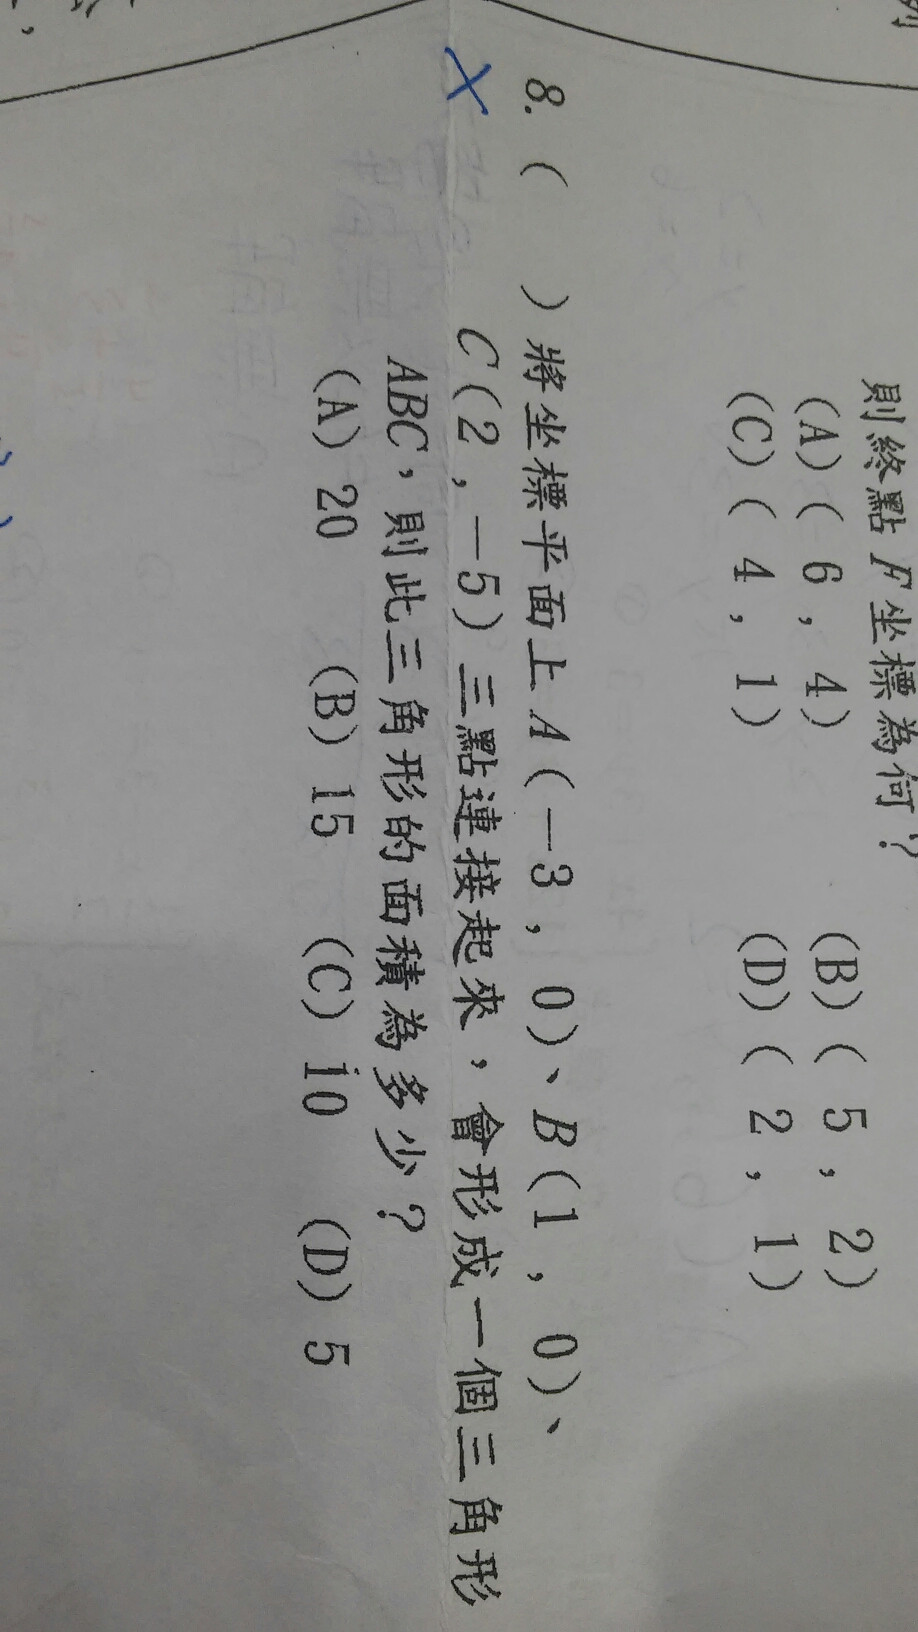 則終點F坐標為何？
(A)(－6，4) (B)(5，2)
(C)(4，1) (D)(2，1)
8.( )將坐標平面上A(－3，0)、B(1，0)、
C(2，－5)三點連接起來，會形成一個三角形
ABC，則此三角形的面積為多少？
(A) 20 (B) 15 (C) 10 (D) 5